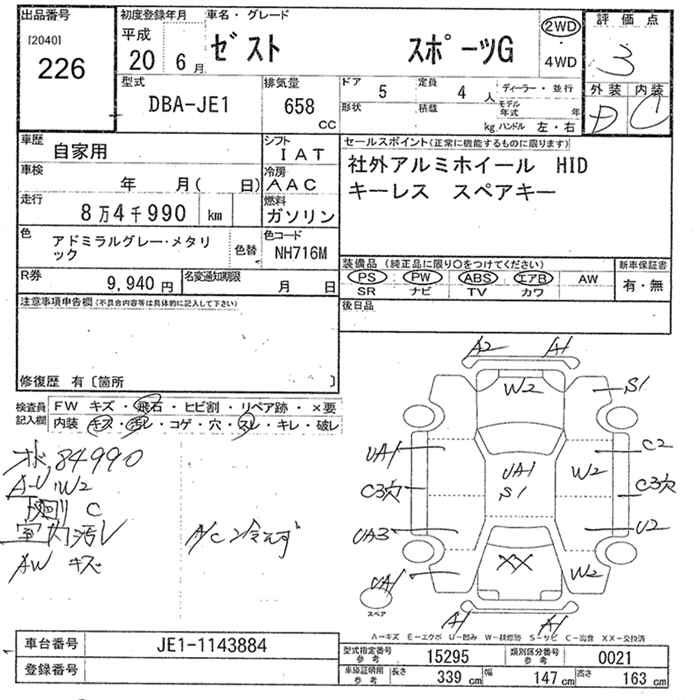 出品番号
[2040]
226
初度登録年月
平成
20 年 6 月
車名・グレード
ゼスト スポーツG
2WD
・
4WD
評価点
3
外装 内装
D C
型式
DBA-JE1
排気量
658
cc
ドア 5
定員 4 人
ディーラー・並行
形状
積載
kg
モデル年式 年
ハンドル 左・右
車歴
自家用
シフト
IAT
車検
年 月( 日)
冷房
AAC
走行
8万4千990 km
燃料
ガソリン
色
アドミラルグレー・メタリ
ック
色替
色コード
NH716M
R券
9,940円
名変通知期限
月 日
セールスポイント(正常に機能するものに限ります)
社外アルミホイール HID
キーレス スペアキー
装備品 (純正品に限り○をつけてください)
PS PW ABS エアB AW
SR ナビ TV カワ
新車保証書
有・無
後日品
注意事項申告欄(不具合内容等は具体的に記入して下さい)
修復歴 有〔箇所 〕
検査員
記入欄
FW キズ・飛石・ヒビ割・リペア跡・×要
内装 キズ・汚レ・コゲ・穴・スレ・キレ・破レ
84990
A-U W2
下廻り C
室内汚レ
AW キズ
A/C 冷えず
A2 A1
W2
S1
UA1
C2
UA1
S1
W2
C3穴
C3穴
UA3
U2
XX
UA1
W2
スペア
A1 A1
A－キズ E－エクボ U－凹み W－移修跡 S－サビ C－腐食 XX－交換済
車台番号
JE1-1143884
登録番号
型式指定番号
参考
15295
類別区分番号
参考
0021
車庫証明用
参考
長さ
339 cm
幅
147 cm
高さ
163 cm